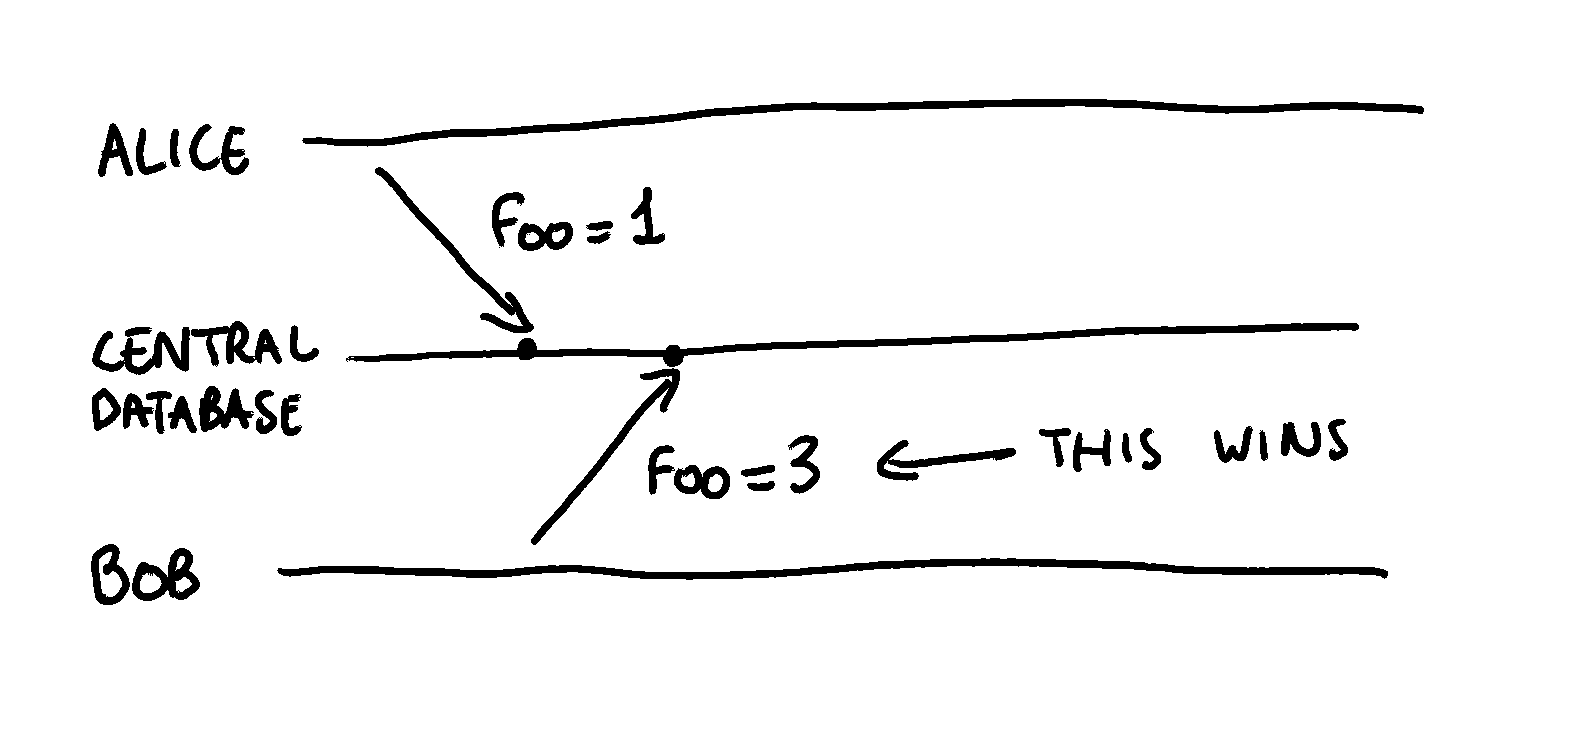 ALICE
Foo = 1
CENTRAL
DATABASE
Foo = 3
THIS WINS
BOB